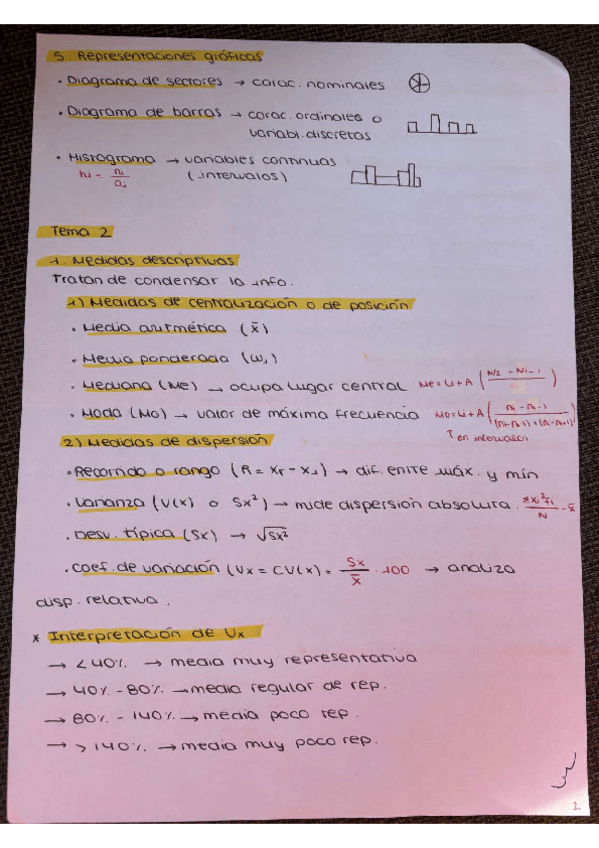 5. Representaciones gráficas
· Diagrama de sectores → carac. nominales
· Diagrama de barras → carac. ordinales o
variabl. discretas
· Histograma → variables continuas
hi = ni/ai (intervalos)
Tema 2
1. Medidas descriptivas
Tratan de condensar la info.
1) Medidas de centralización o de posición
· Media aritmética (x̄)
· Media ponderada (ωi)
· Mediana (Me) → ocupa lugar central Me = Li + A (N/2 - Ni-1
· Moda (Mo) → valor de máxima frecuencia Mo = Li + A (ni - ni-1 / (ni-ni-1)+(ni-ni+1))
↑ en intervalos
2) Medidas de dispersión
· Recorrido o rango (R = xr - x1) → dif. entre máx. y mín
· Varianza (V(x) o Sx²) → mide dispersión absoluta. Σxi²fi/N - x̄
· Desv. típica (Sx) → √Sx²
· Coef. de variación (Vx = CV(x) = Sx/x̄ · 100 → analiza
disp. relativa.
* Interpretación de Vx
→ < 40% → media muy representativa
→ 40% - 80% → media regular de rep.
→ 80% - 140% → media poco rep.
→ > 140% → media muy poco rep.
2